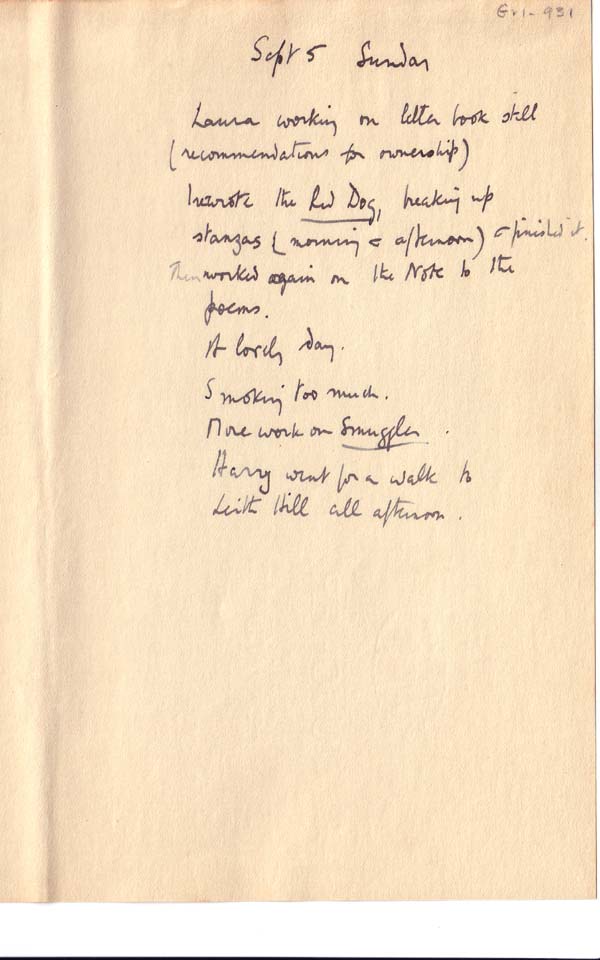 Gr1-931
Sept 5 Sunday
Laura working on letter book still
(recommendations for ownership)
I rewrote the Red Dog, breaking up
stanzas (morning & afternoon) & finished it.
Then worked again on the Note to the
poems.
A lovely day.
Smoking too much.
More work on Smuggler.
Harry went for a walk to
Leith Hill all afternoon.